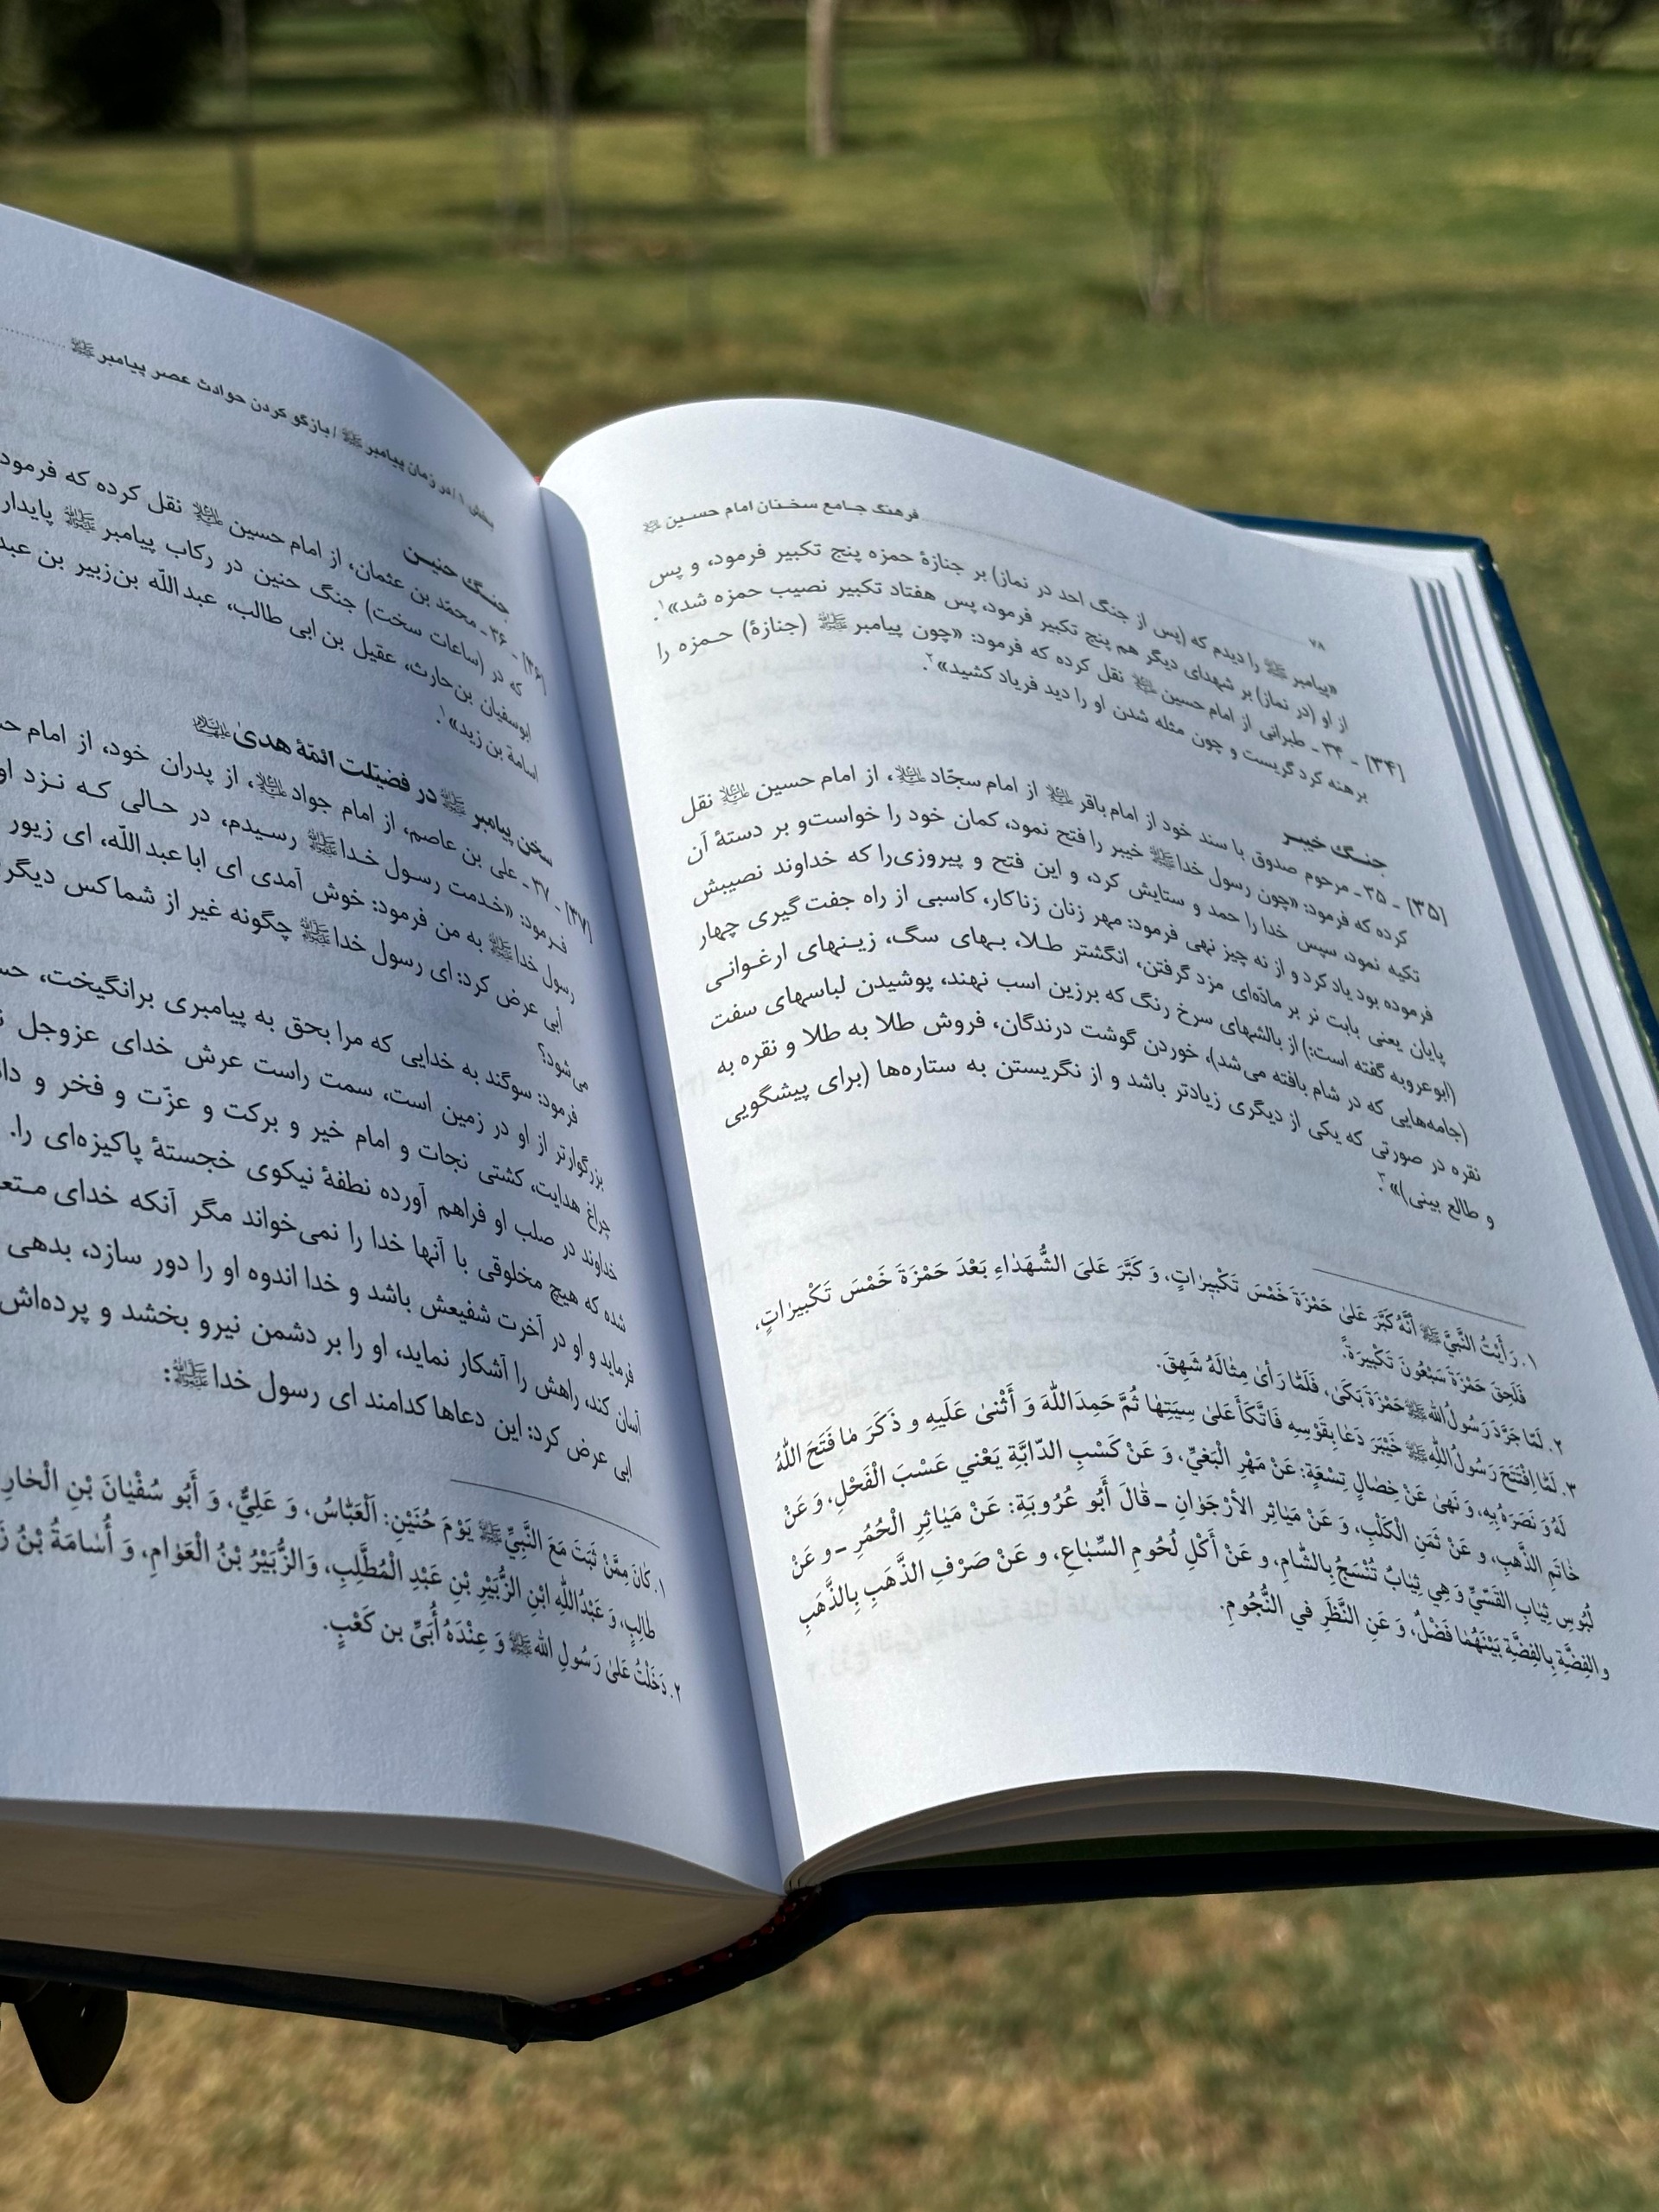 ۷۸ فرهنگ جامع سخنان امام حسین ﷷ
«پیامبر ﷺ را دیدم که (پس از جنگ احد در نماز) بر جنازهٔ حمزه پنج تکبیر فرمود، و پس
از او (در نماز) بر شهدای دیگر هم پنج تکبیر فرمود، پس هفتاد تکبیر نصیب حمزه شد»۱.
[۳۴] ـ ۳۴ ـ طبرانی از امام حسین ﷷ نقل کرده که فرمود: «چون پیامبر ﷺ (جنازهٔ) حمزه را
برهنه کرد گریست و چون مثله شدن او را دید فریاد کشید»۲.
جنگ خیبر
[۳۵] ـ ۳۵ ـ مرحوم صدوق با سند خود از امام باقر ﷷ از امام سجّاد ﷷ، از امام حسین ﷷ نقل
کرده که فرمود: «چون رسول خدا ﷺ خیبر را فتح نمود، کمان خود را خواست‌و بر دستهٔ آن
تکیه نمود، سپس خدا را حمد و ستایش کرد، و این فتح و پیروزی‌را که خداوند نصیبش
فرموده بود یاد کرد و از نه چیز نهی فرمود: مهر زنان زناکار، کاسبی از راه جفت گیری چهار
پایان یعنی بابت نر بر مادّه‌ای مزد گرفتن، انگشتر طلا، بهای سگ، زینهای ارغوانی
(ابوعروبه گفته است:) از بالشهای سرخ رنگ که برزین اسب نهند، پوشیدن لباسهای سفت
(جامه‌هایی که در شام بافته می‌شد)، خوردن گوشت درندگان، فروش طلا به طلا و نقره به
نقره در صورتی که یکی از دیگری زیادتر باشد و از نگریستن به ستاره‌ها (برای پیشگویی
و طالع بینی)»۳.
۱. رَأَیْتُ النَّبِيَّ ﷺ أَنَّهُ کَبَّرَ عَلیٰ حَمْزَةَ خَمْسَ تَکْبِیرٰاتٍ، وَ کَبَّرَ عَلیَ الشُّهَدٰاءِ بَعْدَ حَمْزَةَ خَمْسَ تَکْبِیرٰاتٍ،
فَلَحِقَ حَمْزَةَ سَبْعُونَ تَکْبِیرَةً.
۲. لَمّٰا جَرَّدَ رَسُولُ اللهِ ﷺ حَمْزَةَ بَکیٰ، فَلَمّٰا رَأیٰ مِثٰالَهُ شَهِقَ.
۳. لَمَّا افْتَتَحَ رَسُولُ اللهِ ﷺ خَیْبَرَ دَعٰا بِقَوْسِهِ فَاتَّکَأَ عَلیٰ سِیَتِهٰا ثُمَّ حَمِدَ اللهَ وَ أَثْنیٰ عَلَیهِ وَ ذَکَرَ مٰا فَتَحَ اللهُ
لَهُ وَ نَصَرَهُ بِهِ، وَ نَهیٰ عَنْ خِصٰالٍ تِسْعَةٍ: عَنْ مَهْرِ الْبَغيِّ، وَ عَنْ کَسْبِ الدّابَّةِ یَعْني عَسْبَ الْفَحْلِ، وَ عَنْ
خٰاتَمِ الذَّهَبِ، و عَنْ ثَمَنِ الْکَلْبِ، وَ عَنْ مَیٰاثِرِ الأرْجَوٰانِ ـ قٰالَ أَبُو عُرُوبَةٍ: عَنْ مَیٰاثِرِ الْحُمُرِ ـ و عَنْ
لُبُوسِ ثِیٰابِ القَسّيِّ وَ هِي ثِیٰابٌ تُنْسَجُ بِالشّٰامِ، و عَنْ أَکْلِ لُحُومِ السِّبٰاعِ، و عَنْ صَرْفِ الذَّهَبِ بِالذَّهَبِ
و الفِضَّةِ بِالفِضَّةِ بَیْنَهُمٰا فَضْلٌ، وَ عَنِ النَّظَرِ في النُّجُومِ.
بخش ۱ / در زمان پیامبر ﷺ / بازگو کردن حوادث عصر پیامبر ﷺ
جنگ حنین
[۳۶] ـ ۳۶ ـ محمّد بن عثمان، از امام حسین ﷷ نقل کرده که فرمود
که در (ساعات سخت) جنگ حنین در رکاب پیامبر ﷺ پایدار
ابوسفیان بن‌حارث، عقیل بن ابی طالب، عبدالله بن‌زبیر بن عبد
اسامة بن زید»۱.
سخن پیامبر ﷺ در فضیّلت ائمّهٔ هدی ﷷ
[۳۷] ـ ۳۷ ـ علی بن عاصم، از امام جواد ﷷ، از پدران خود، از امام
فرمود: «خدمت رسول خدا ﷺ رسیدم، در حالی که نزد او
رسول خدا ﷺ به من فرمود: خوش آمدی ای ابا عبدالله، ای زیور
أبی عرض کرد: ای رسول خدا ﷺ چگونه غیر از شما کس دیگر
می‌شود؟
فرمود: سوگند به خدایی که مرا بحق به پیامبری برانگیخت،
بزرگوارتر از او در زمین است، سمت راست عرش خدای عزوجل
چراغ هدایت، کشتی نجات و امام خیر و برکت و عزّت و فخر و
خداوند در صلب او فراهم آورده نطفهٔ نیکوی خجستهٔ پاکیزه‌ای را.
شده که هیچ مخلوقی با آنها خدا را نمی‌خواند مگر آنکه خدای
فرماید و او در آخرت شفیعش باشد و خدا اندوه او را دور سازد، بدهی
آسان کند، راهش را آشکار نماید، او را بر دشمن نیرو بخشد و پرده‌اش
ابی عرض کرد: این دعاها کدامند ای رسول خدا ﷺ:
۱. کٰانَ مِمَّنْ ثَبَتَ مَعَ النَّبِيِّ ﷺ یَوْمَ حُنَیْنٍ: اَلْعَبّٰاسُ، وَ عَلِيٌّ، وَ أَبُو سُفْیٰانَ بْنِ الْحٰارِ
طٰالِبٍ، وَ عَبْدُ اللهِ ابْنِ الزُّبَیْرِ بْنِ عَبْدِ الْمُطَّلِبِ، وَالزُّبَیْرُ بْنُ الْعَوٰامِ، وَ أُسٰامَةُ بْنُ
۲. دَخَلْتُ عَلیٰ رَسُولِ اللهِ ﷺ وَ عِنْدَهُ أُبَيِّ بن کَعْبٍ.